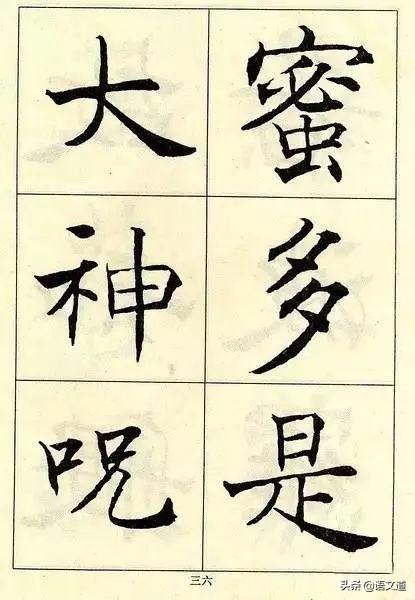 蜜多是
大神呪
三六
头条 @语文道